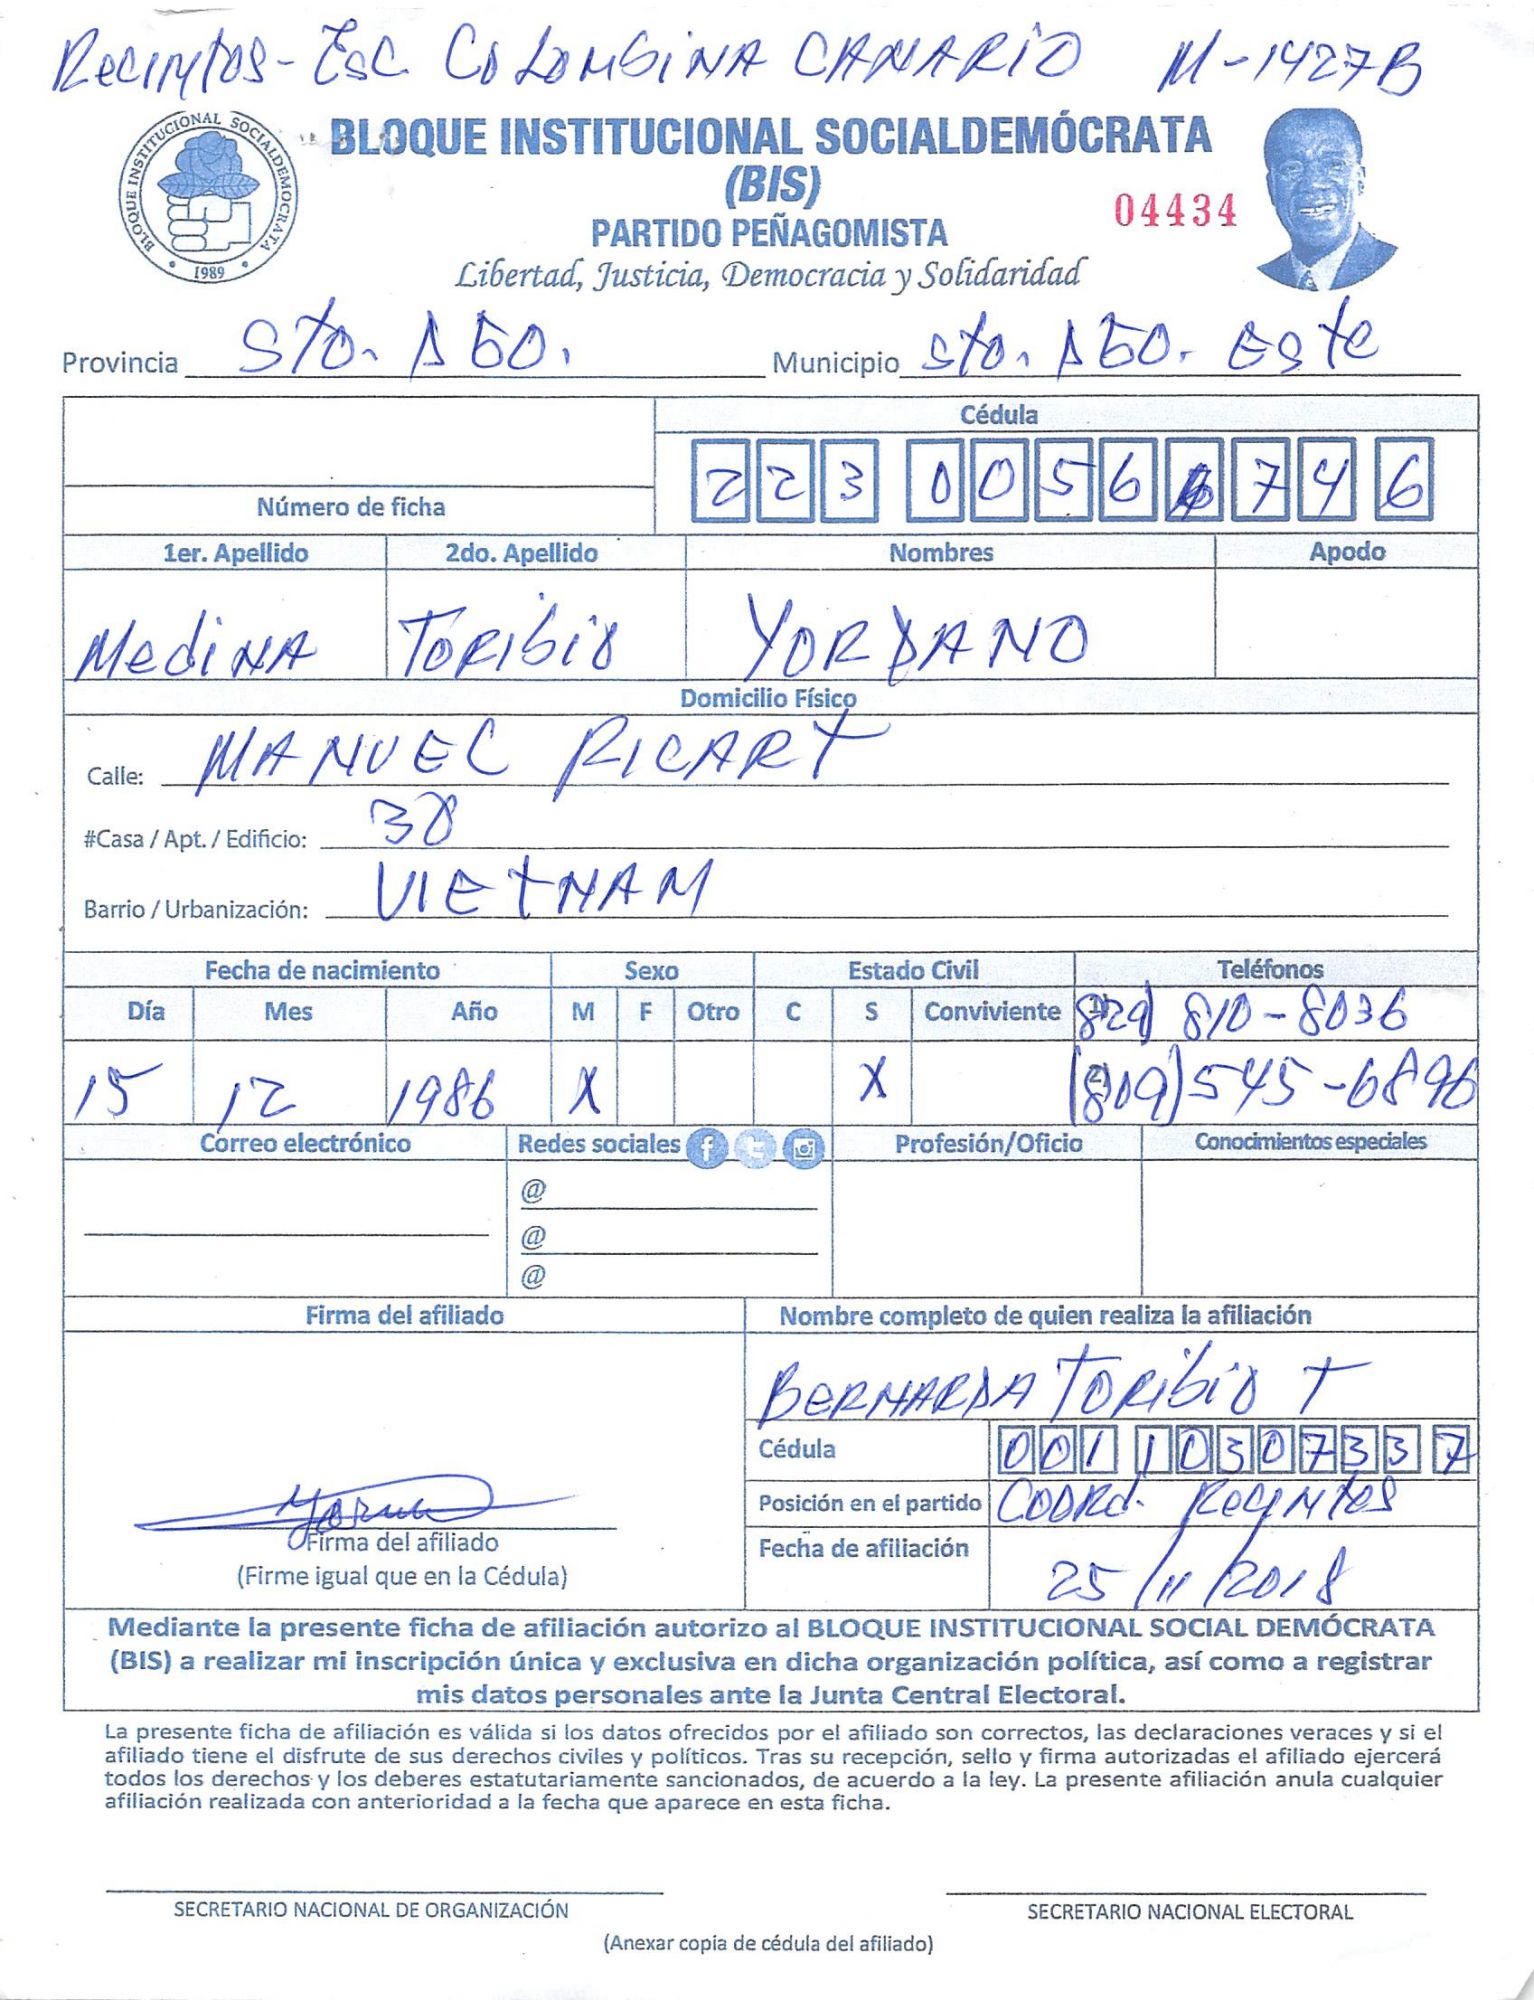 Recintos - Esc. COLOMBINA CANARIO M-1427B
BLOQUE INSTITUCIONAL SOCIALDEMOCRATA
1989
BLOQUE INSTITUCIONAL SOCIALDEMÓCRATA
(BIS)
PARTIDO PEÑAGOMISTA
04434
Libertad, Justicia, Democracia y Solidaridad
Provincia Sto. Dgo. Municipio Sto. Dgo. Este
Cédula
223 0056 746
Número de ficha
1er. Apellido 2do. Apellido Nombres Apodo
Medina Toribio YORDANO
Domicilio Físico
Calle: MANUEL RICART
#Casa / Apt. / Edificio: 38
Barrio / Urbanización: VIETNAM
Fecha de nacimiento Sexo Estado Civil Teléfonos
Día Mes Año M F Otro C S Conviviente 1) (829) 810-8036
15 12 1986 X X 2) (809) 545-6896
Correo electrónico Redes sociales Profesión/Oficio Conocimientos especiales
@
@
@
Firma del afiliado Nombre completo de quien realiza la afiliación
BERNARDA TORIBIO T
Cédula 001 1030733 7
Posición en el partido Coord. Recintos
Firma del afiliado
(Firme igual que en la Cédula)
Fecha de afiliación 25/11/2018
Mediante la presente ficha de afiliación autorizo al BLOQUE INSTITUCIONAL SOCIAL DEMÓCRATA
(BIS) a realizar mi inscripción única y exclusiva en dicha organización política, así como a registrar
mis datos personales ante la Junta Central Electoral.
La presente ficha de afiliación es válida si los datos ofrecidos por el afiliado son correctos, las declaraciones veraces y si el
afiliado tiene el disfrute de sus derechos civiles y políticos. Tras su recepción, sello y firma autorizadas el afiliado ejercerá
todos los derechos y los deberes estatutariamente sancionados, de acuerdo a la ley. La presente afiliación anula cualquier
afiliación realizada con anterioridad a la fecha que aparece en esta ficha.
SECRETARIO NACIONAL DE ORGANIZACIÓN SECRETARIO NACIONAL ELECTORAL
(Anexar copia de cédula del afiliado)